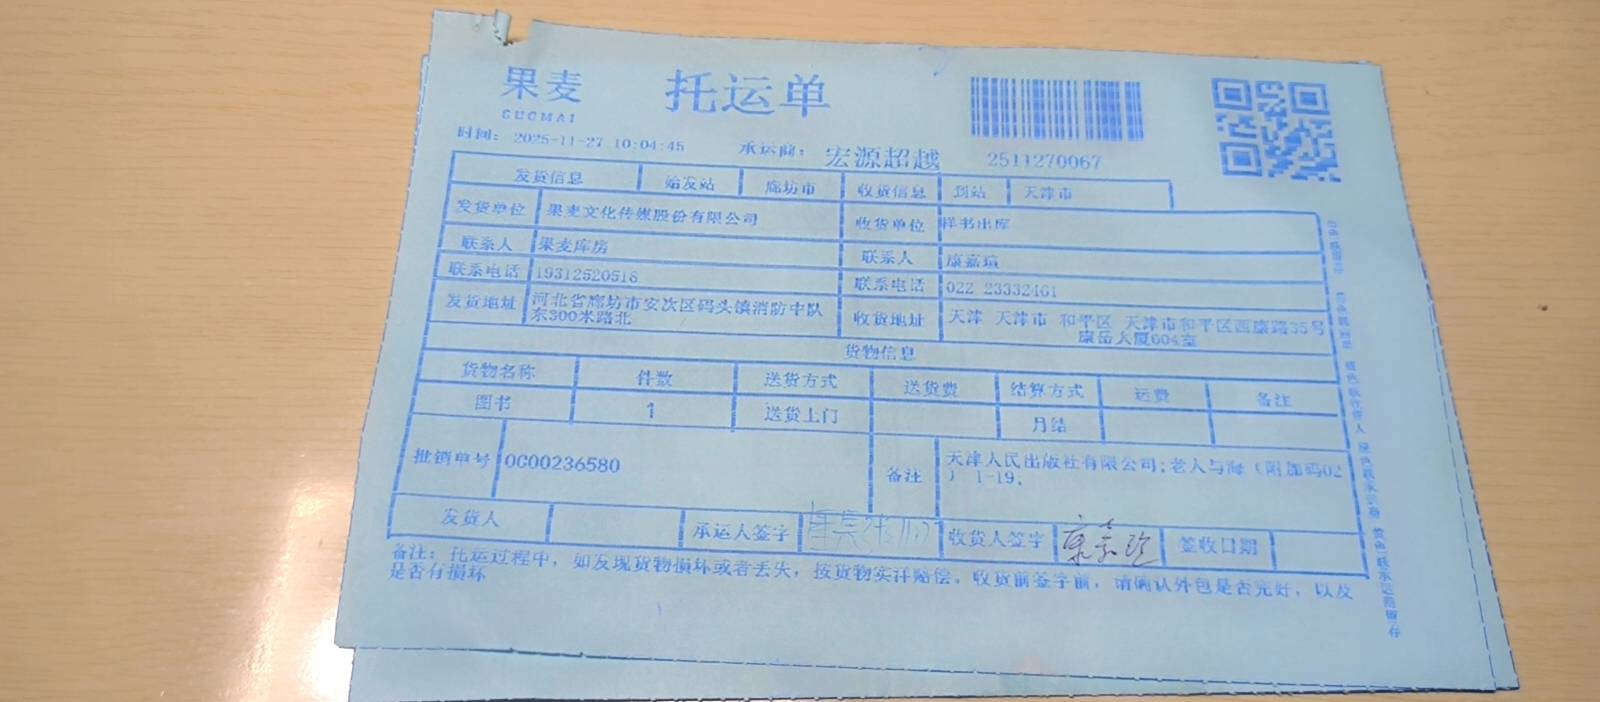 果麦
GUOMAI
托运单
时间: 2025-11-27 10:04:45
承运商: 宏源超越
2511270067
发货信息 始发站 廊坊市 收货信息 到站 天津市
发货单位 果麦文化传媒股份有限公司 收货单位 样书出库
联系人 果麦库房 联系人 康嘉瑄
联系电话 19312520518 联系电话 022 23332461
发货地址 河北省廊坊市安次区码头镇消防中队
东300米路北
收货地址 天津 天津市 和平区 天津市和平区西康路35号
康岳大厦604室
货物信息
货物名称 件数 送货方式 送货费 结算方式 运费 备注
图书 1 送货上门 月结
批销单号 OC00236580 备注 天津人民出版社有限公司;老人与海(附加码02
) 1-19.
发货人 承运人签字 收货人签字 签收日期
备注: 托运过程中,如发现货物损坏或者丢失,按货物实洋赔偿。收货前签字前,请确认外包是否完好,以及
是否有损坏